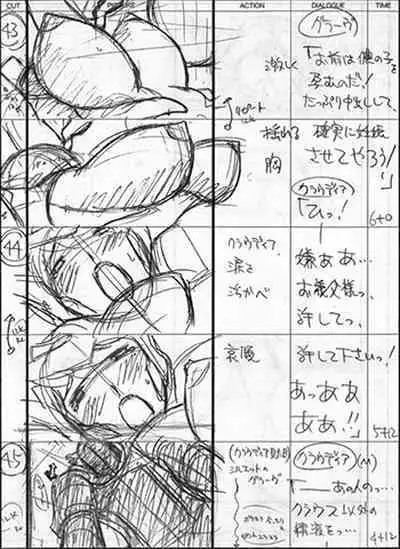 CUT
PICTURE
ACTION
DIALOGUE
TIME
43
激しく
グラーヴ
「お前は僕の子を
孕むのだ!
たっぷり中出しして、
リピート
揺れる
胸
確実に妊娠
させてやろう!」
クラウディア
「ひっ!
6+0
44
クラウディア
涙を
浮かべ
嫌ああ…
お義父様っ、
許してっ、
哀願
許して下さいっ!
あっああ
ああ!!」
5+12
45
クラウディア
シルエットの
グラーヴ
クラウディア (M)
「――あの人のっ…
クラウス以外の
精液をっ…
4+12